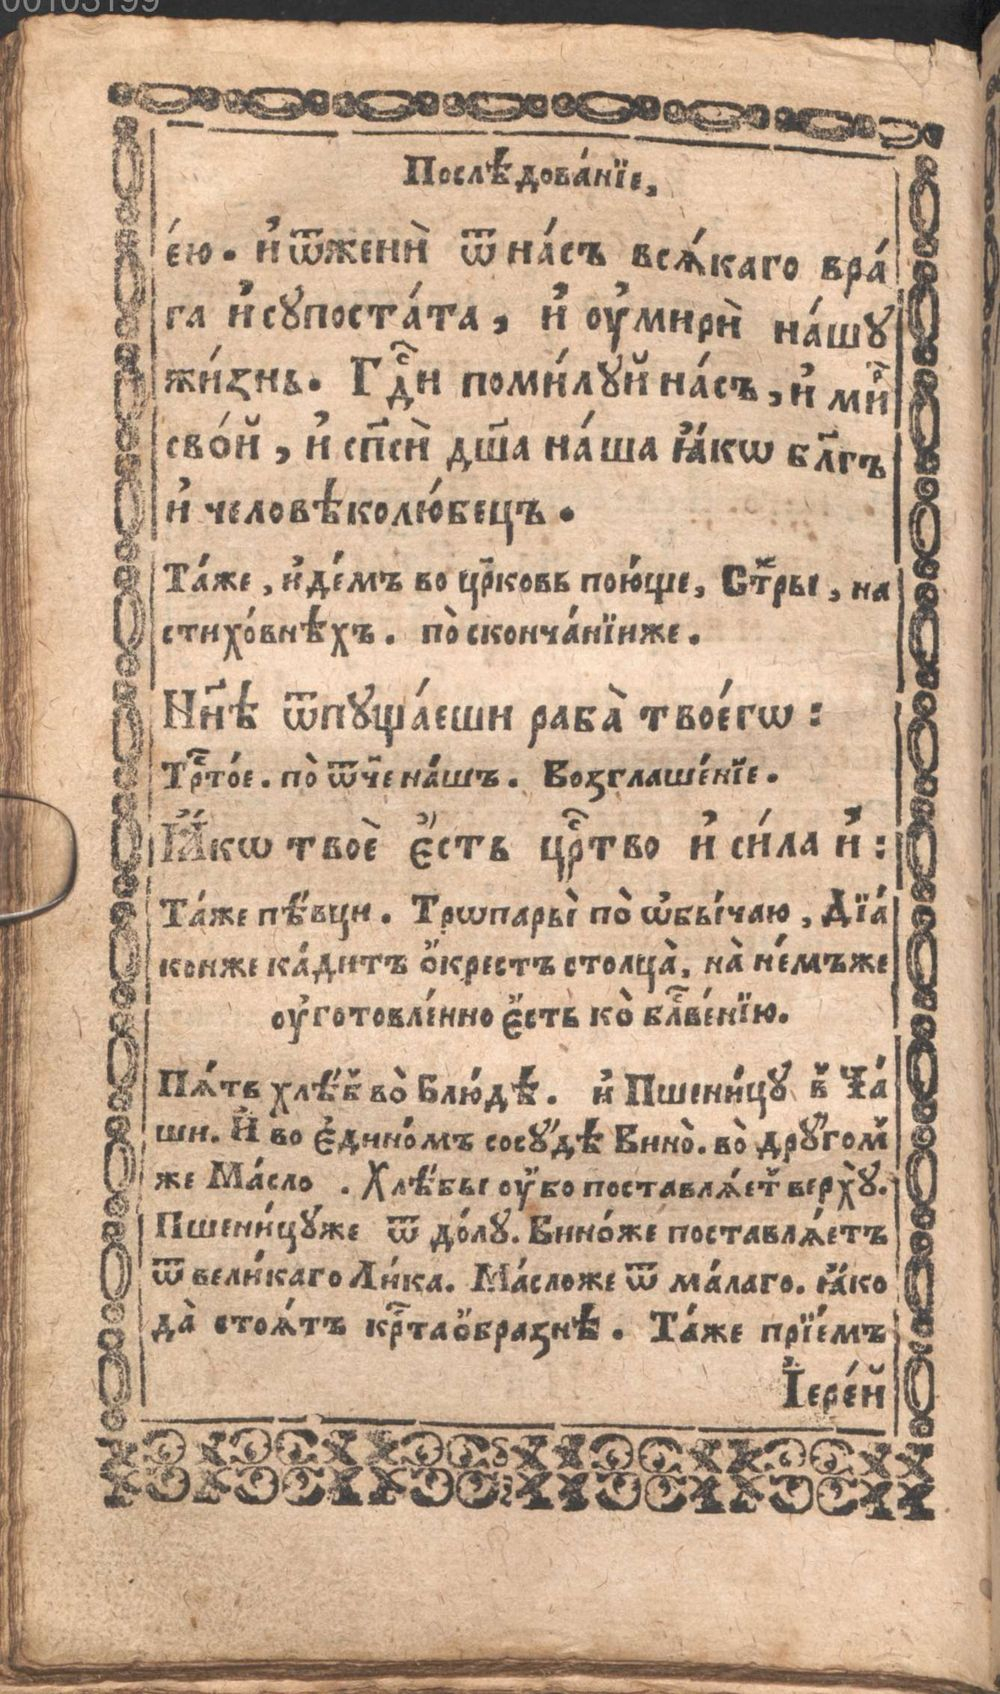 00103199
Послѣдова́нїе,
е́ю. и҆ ѿжени̏ ѿ на́съ всѧ́каго вра́
га и҆ сꙋпоста́та, и҆ ᲂу҆мири̏ на́шꙋ
жи́знь. Гдⷭ҇и поми́лꙋй на́съ, и҆ ми́й
сво́й, и҆ сп҃си̏ дш҃а на́ша ꙗ҆́кѡ бл҃гъ
и҆ человѣколю́бецъ.
Та́же, и҆де́мъ во цр҃ковь пою́ще, Стⷯры, на
стихо́внѣхъ. по̀ сконча́нїиже.
Нн҃ѣ ѿпꙋща́еши раба̀ твоегѡ̀:
Трⷭ҇то́е. по̀ ѿч҃е на́шъ. Возглаше́нїе.
Ꙗ҆́кѡ твоѐ є҆́сть црⷭ҇тво и҆ си́ла и҆:
Та́же пѣвци. Трѡпары̀ по̀ ѡ҆бы́чаю, Дїа́
конже ка́дитъ ѻ҆́крестъ столца̀, на̀ не́мъже
ᲂу҆готовле́нно є҆́сть ко̀ блⷭ҇ве́нїю.
Пѧ́ть хлѣ́б̾ во̀ Блю́дѣ. и҆ Пшени́цꙋ в̾ Ча́
ши. И҆ во є҆дино́мъ сосꙋ́дѣ Вино̀. во̀ дрꙋгом̾
же Ма́сло. Хлѣ́бы ᲂу҆́бо поставлѧ́ет̾ верхꙋ̀.
Пшени́цꙋже ѿ до́лꙋ. Вино́же поставлѧ́етъ
ѿ вели́каго Ли́ка. Ма́сложе ѿ ма́лаго. ꙗ҆́ко
да̀ стоѧ́тъ крⷭ҇таѻ҆́бразнѣ. Та́же прїе́мъ
І҆ере́й